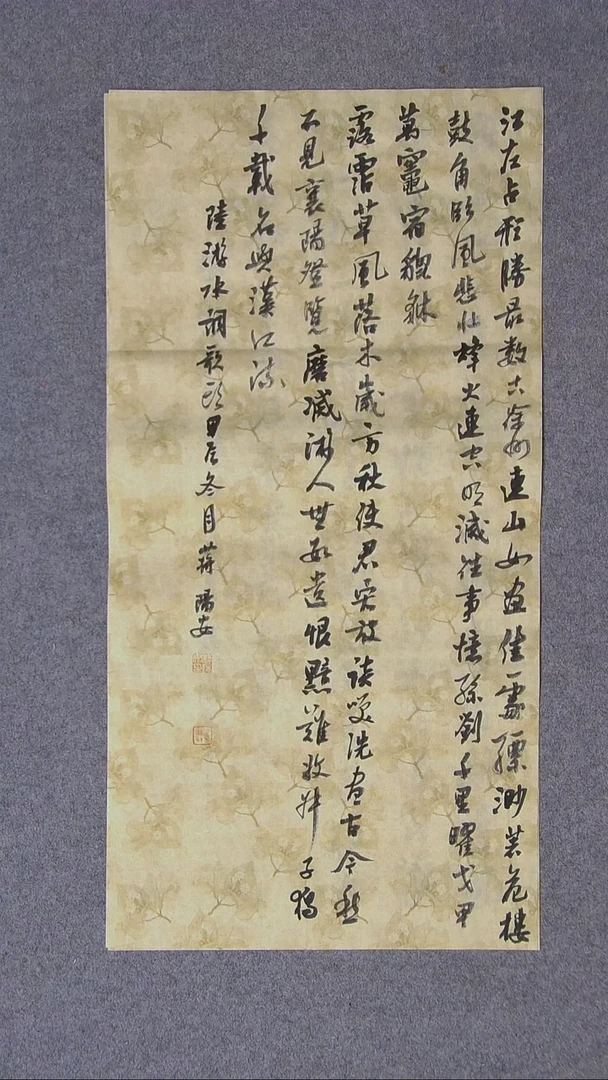 江左占形勝最数古徐州連山如畫佳處縹渺著危樓
鼓角臨風悲壯烽火連空明滅往事憶孫劉千里曜戈甲
萬竈宿貔貅
露霑草風落木歲方秋使君宏放談笑洗盡古今愁
不見襄陽登覽磨滅游人無数遺恨黯難收叔子獨
千載名與漢江流
陸游水調歌頭甲辰冬月蔣陽安